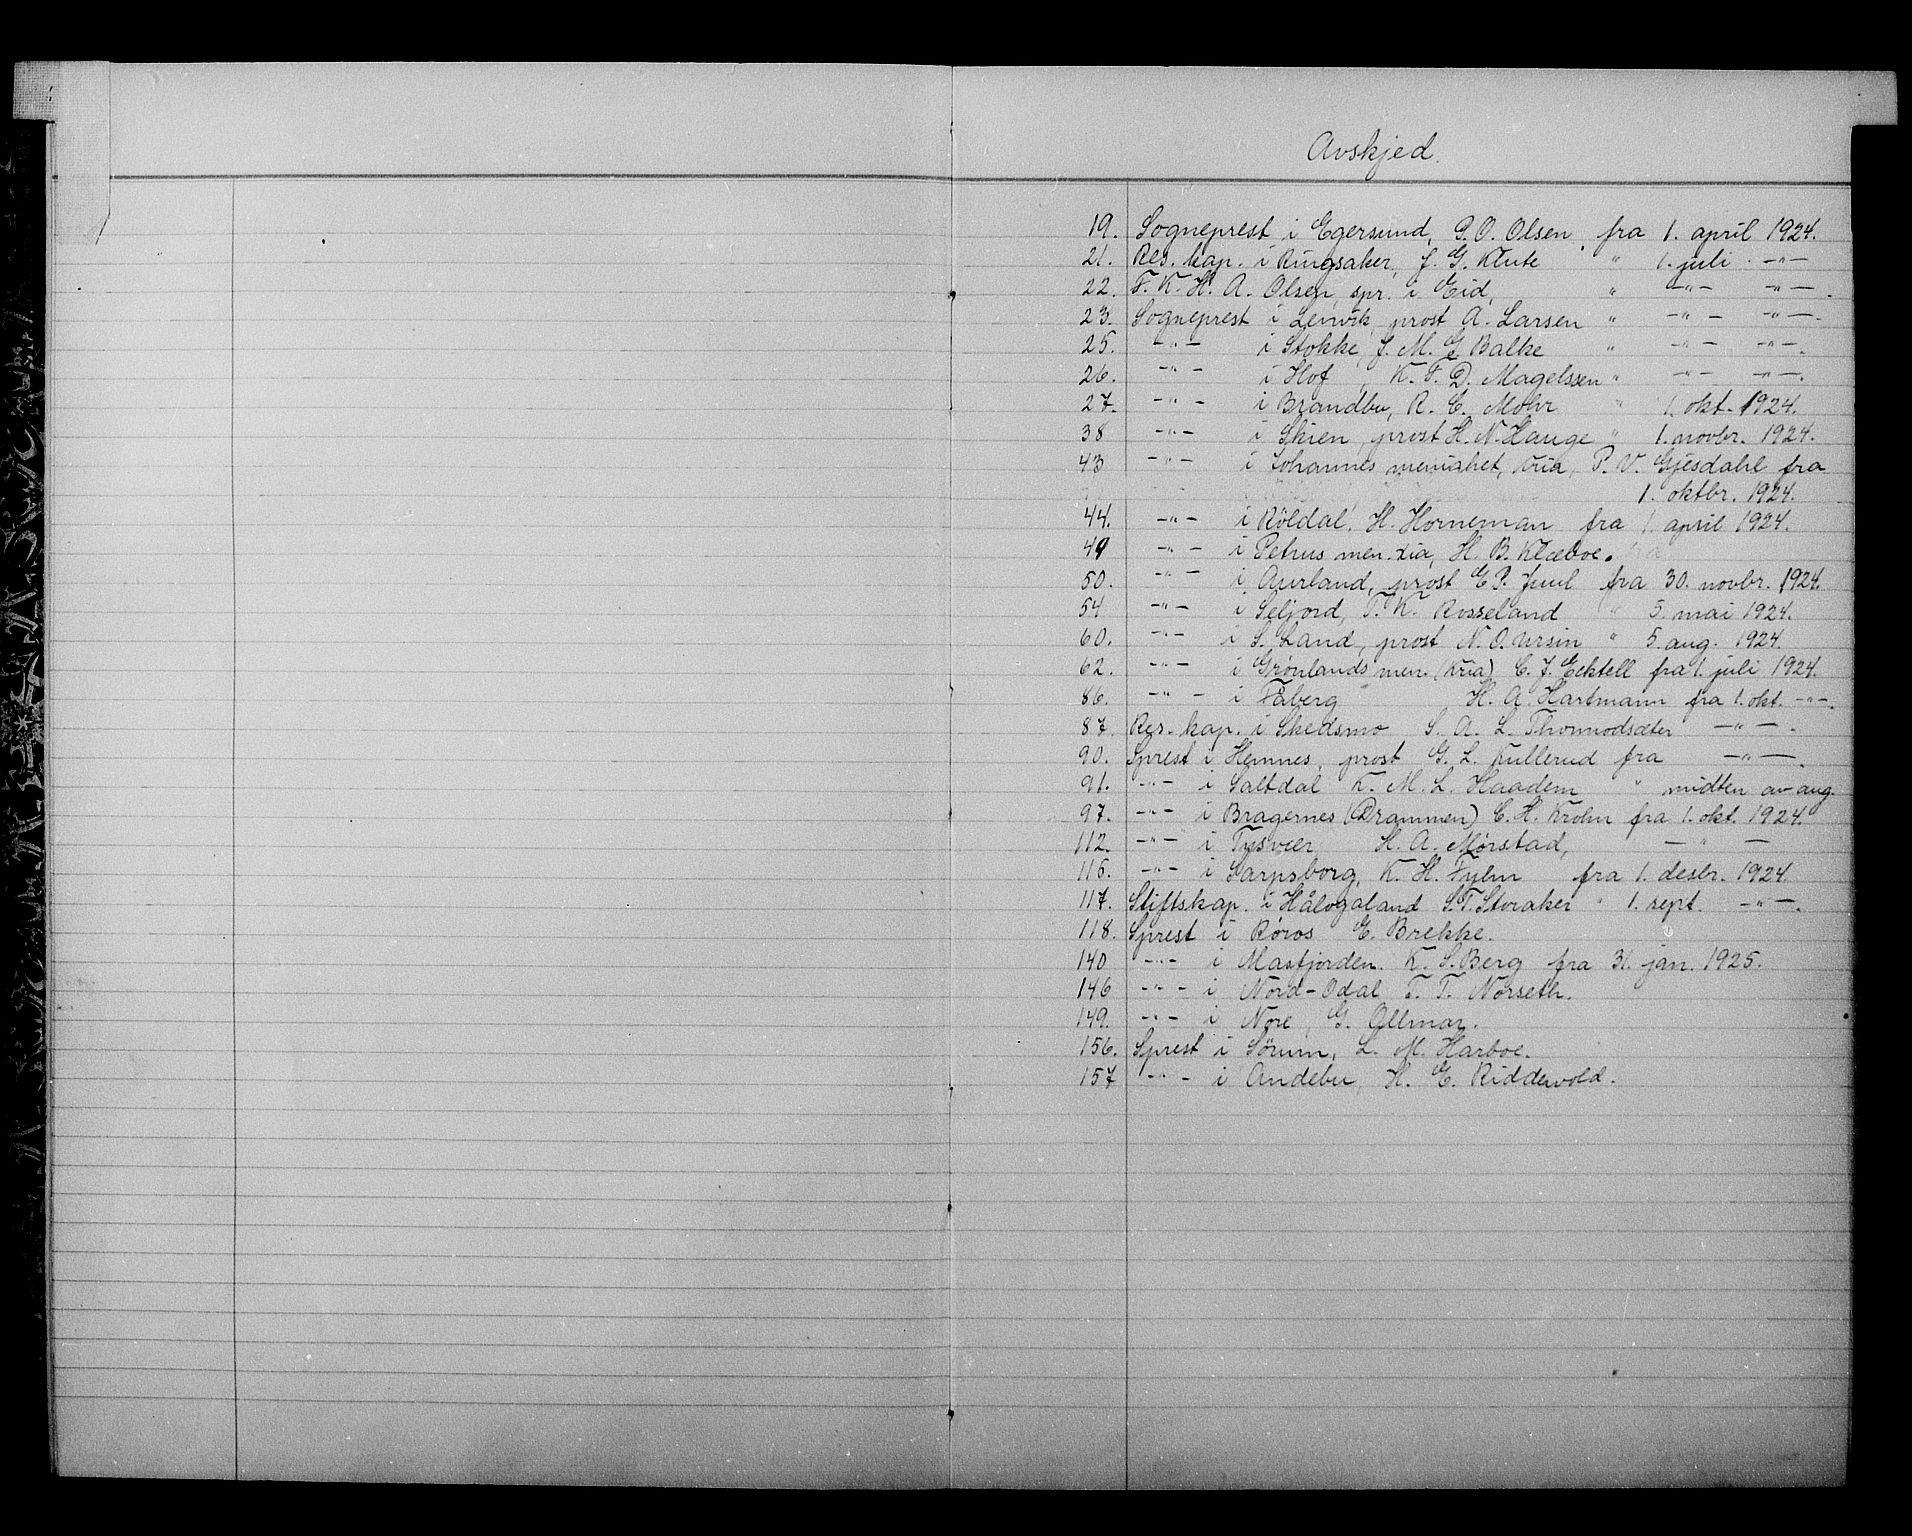 Avskjed.
19. Sogneprest i Egersund, P. O. Olsen, fra 1. april 1924.
21. Res. kap. i Ringsaker, J. G. Klute " 1. juli —"—
22. F. K. H. A. Olsen, spr. i Eid, " —"— —"—.
23. Sogneprest i Lenvik, prost A. Larsen " —"— —"—.
25. —"— i Stokke, J. M. G. Balke " —"— —"—.
26. —"— i Hof, K. F. D. Magelssen " —"— —"—.
27. —"— i Brandbu, R. C. Mohr " 1. okt. 1924.
38 —"— i Skien, prost H. N. Hauge " 1. novbr. 1924.
43 —"— i Johannes menighet, Kria, P. V. Gjesdahl fra
1. oktbr. 1924.
44. —"— i Röldal, H. Horneman fra 1. april 1924.
49 —"— i Petrus men. Kia, H. B. Klæboe. fra
50. —"— i Aurland, prost E. P. Juul fra 30. novbr. 1924.
54 —"— i Seljord, T. K. Rosseland " 5. mai 1924.
60. —"— i S. Land, prost N. O. Ursin " 5. aug. 1924.
62. —"— i Grønlands men. (Kria) C. J. Ecktell fra 1. juli 1924.
86. —"— i Fåberg " H. A. Hartmann fra 1. okt. —"—.
87. Res. kap. i Skedsmo S. A. L. Thormodsæter —"—.
90. Sprest i Hemnes, prost G. L. Kullerud fra —"—.
91. —"— i Saltdal K. M. L. Haadem " midten av aug.
97. —"— i Bragernes (Drammen) C. H. Krohn fra 1. okt. 1924.
112. —"— i Tysvær H. A. Mørstad, —"—
115. —"— i Sarpsborg, K. H. Fylm fra 1. desbr. 1924.
117. Stiftskap. i Hålogaland S. T. Storaker " 1. sept. —"—.
118. Sprest i Røros E. Brekke.
140 —"— i Masfjorden. K. S. Berg fra 31. jan. 1925.
146 —"— i Nord-Odal T. T. Norseth.
149. —"— i Nore, G. Ollmar.
156. Sprest i Sørum, L. M. Harboe.
157 —"— i Andebu, H. E. Riddervold.